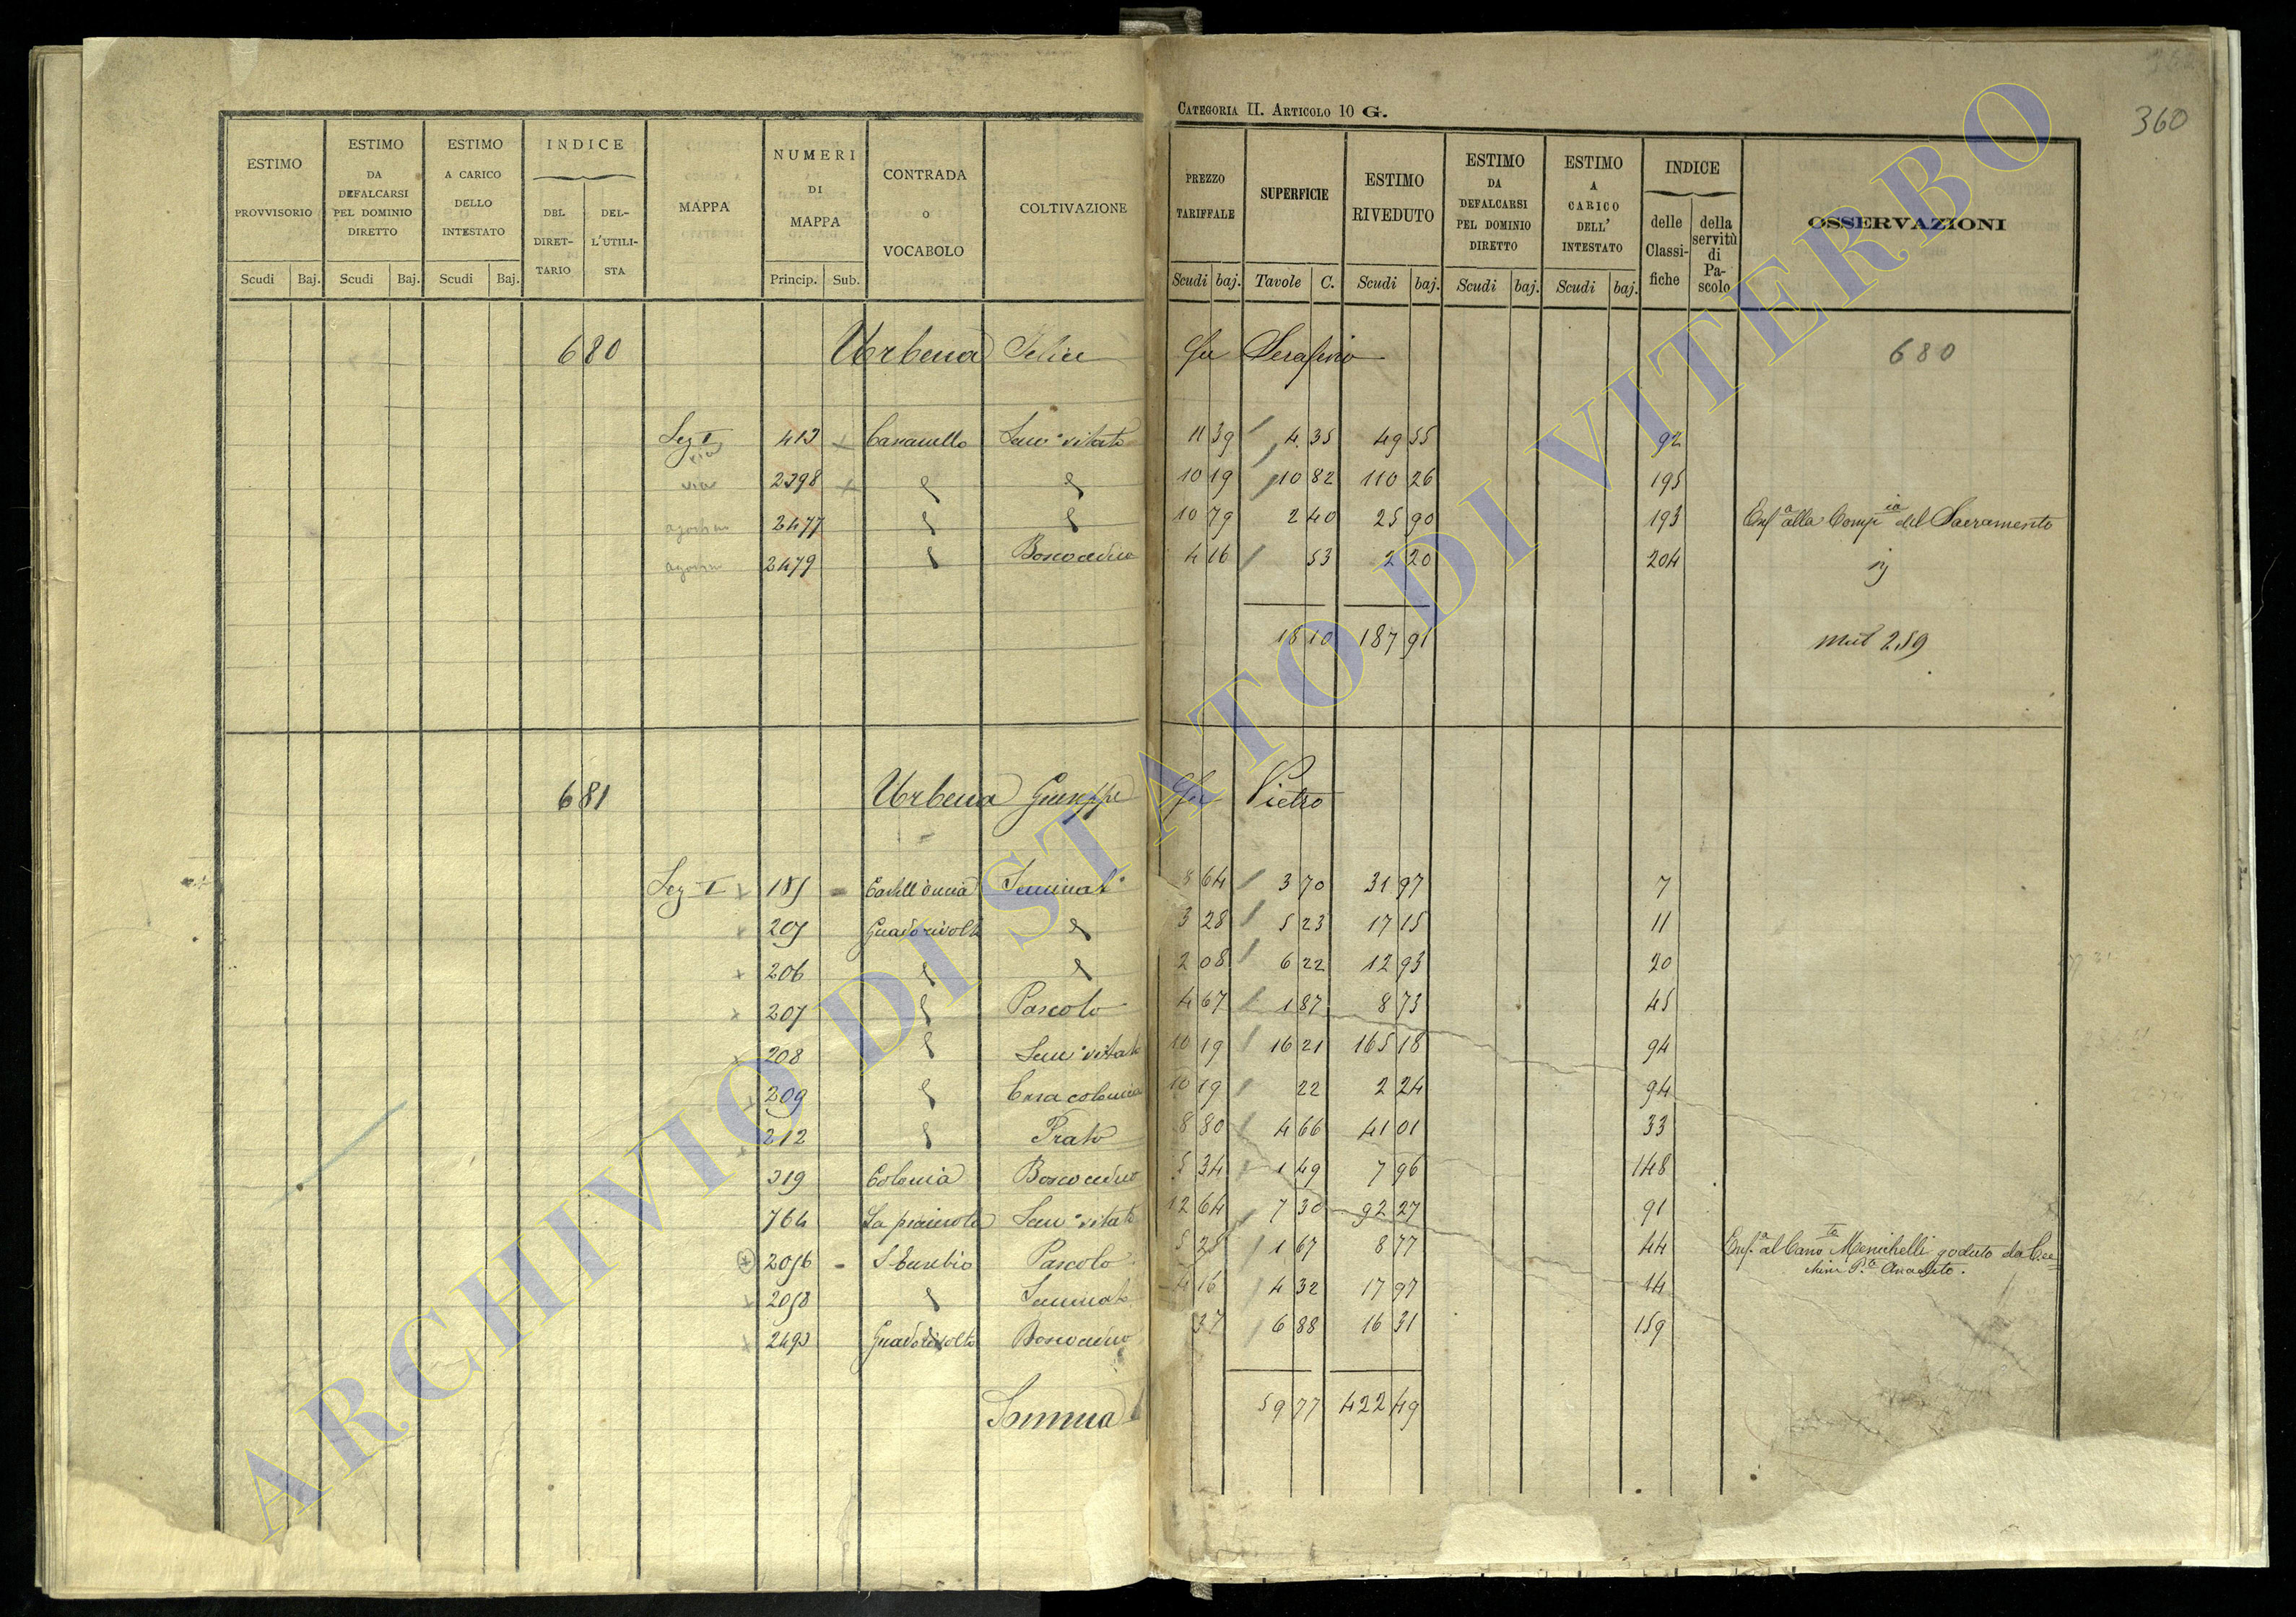 CATEGORIA II. ARTICOLO 10 G.
360
ESTIMO PROVVISORIO Scudi Baj.
ESTIMO DA DEFALCARSI PEL DOMINIO DIRETTO Scudi Baj.
ESTIMO A CARICO DELLO INTESTATO Scudi Baj.
INDICE DEL DIRETTARIO DELL'UTILISTA
MAPPA
NUMERI DI MAPPA Princip. Sub.
CONTRADA O VOCABOLO
COLTIVAZIONE
PREZZO TARIFFALE Scudi baj.
SUPERFICIE Tavole C.
ESTIMO RIVEDUTO Scudi baj.
ESTIMO DA DEFALCARSI PEL DOMINIO DIRETTO Scudi baj.
ESTIMO A CARICO DELL' INTESTATO Scudi baj.
INDICE delle Classifiche della servitù di Pascolo
OSSERVAZIONI
680 Urbena Felice fu Serafino 680
Sez I 413 Casanello Sem° vitato 11 39 4 35 49 55 92
via
via 2398 " " 10 19 10 82 110 26 195
agostino 2477 " " 10 79 2 40 25 90 193 Enfa alla Compia del Sacramento
agostino 2479 " Bosco ceduo 4 16 53 2 20 204
18 10 187 91
681 Urbena Giuseppe fu Pietro
Sez I 185 Seminato 8 64 3 70 31 97 7
205 Guadorivolto " 3 28 5 23 17 15 11
206 " " 2 08 6 22 12 93 20
207 " Pascolo 4 67 1 87 8 73 45
208 " Sem° vitato 10 19 16 21 165 18 94
209 " Casa colonica 10 19 22 2 24 94
212 " Prato 8 80 4 66 41 01 33
319 Colonia Bosco ceduo 5 34 1 49 7 96 148
764 Sem° vitato 12 64 7 30 92 27 91
2056 S Eusebio Pascolo 5 25 1 67 8 77 44 Enfa al Cano Menichelli goduto da
2058 " Seminato 4 16 4 32 17 97 14
2493 Guadorivolto Bosco ceduo 37 6 88 16 31 159
Somma 59 77 422 49
ARCHIVIO DI STATO DI VITERBO